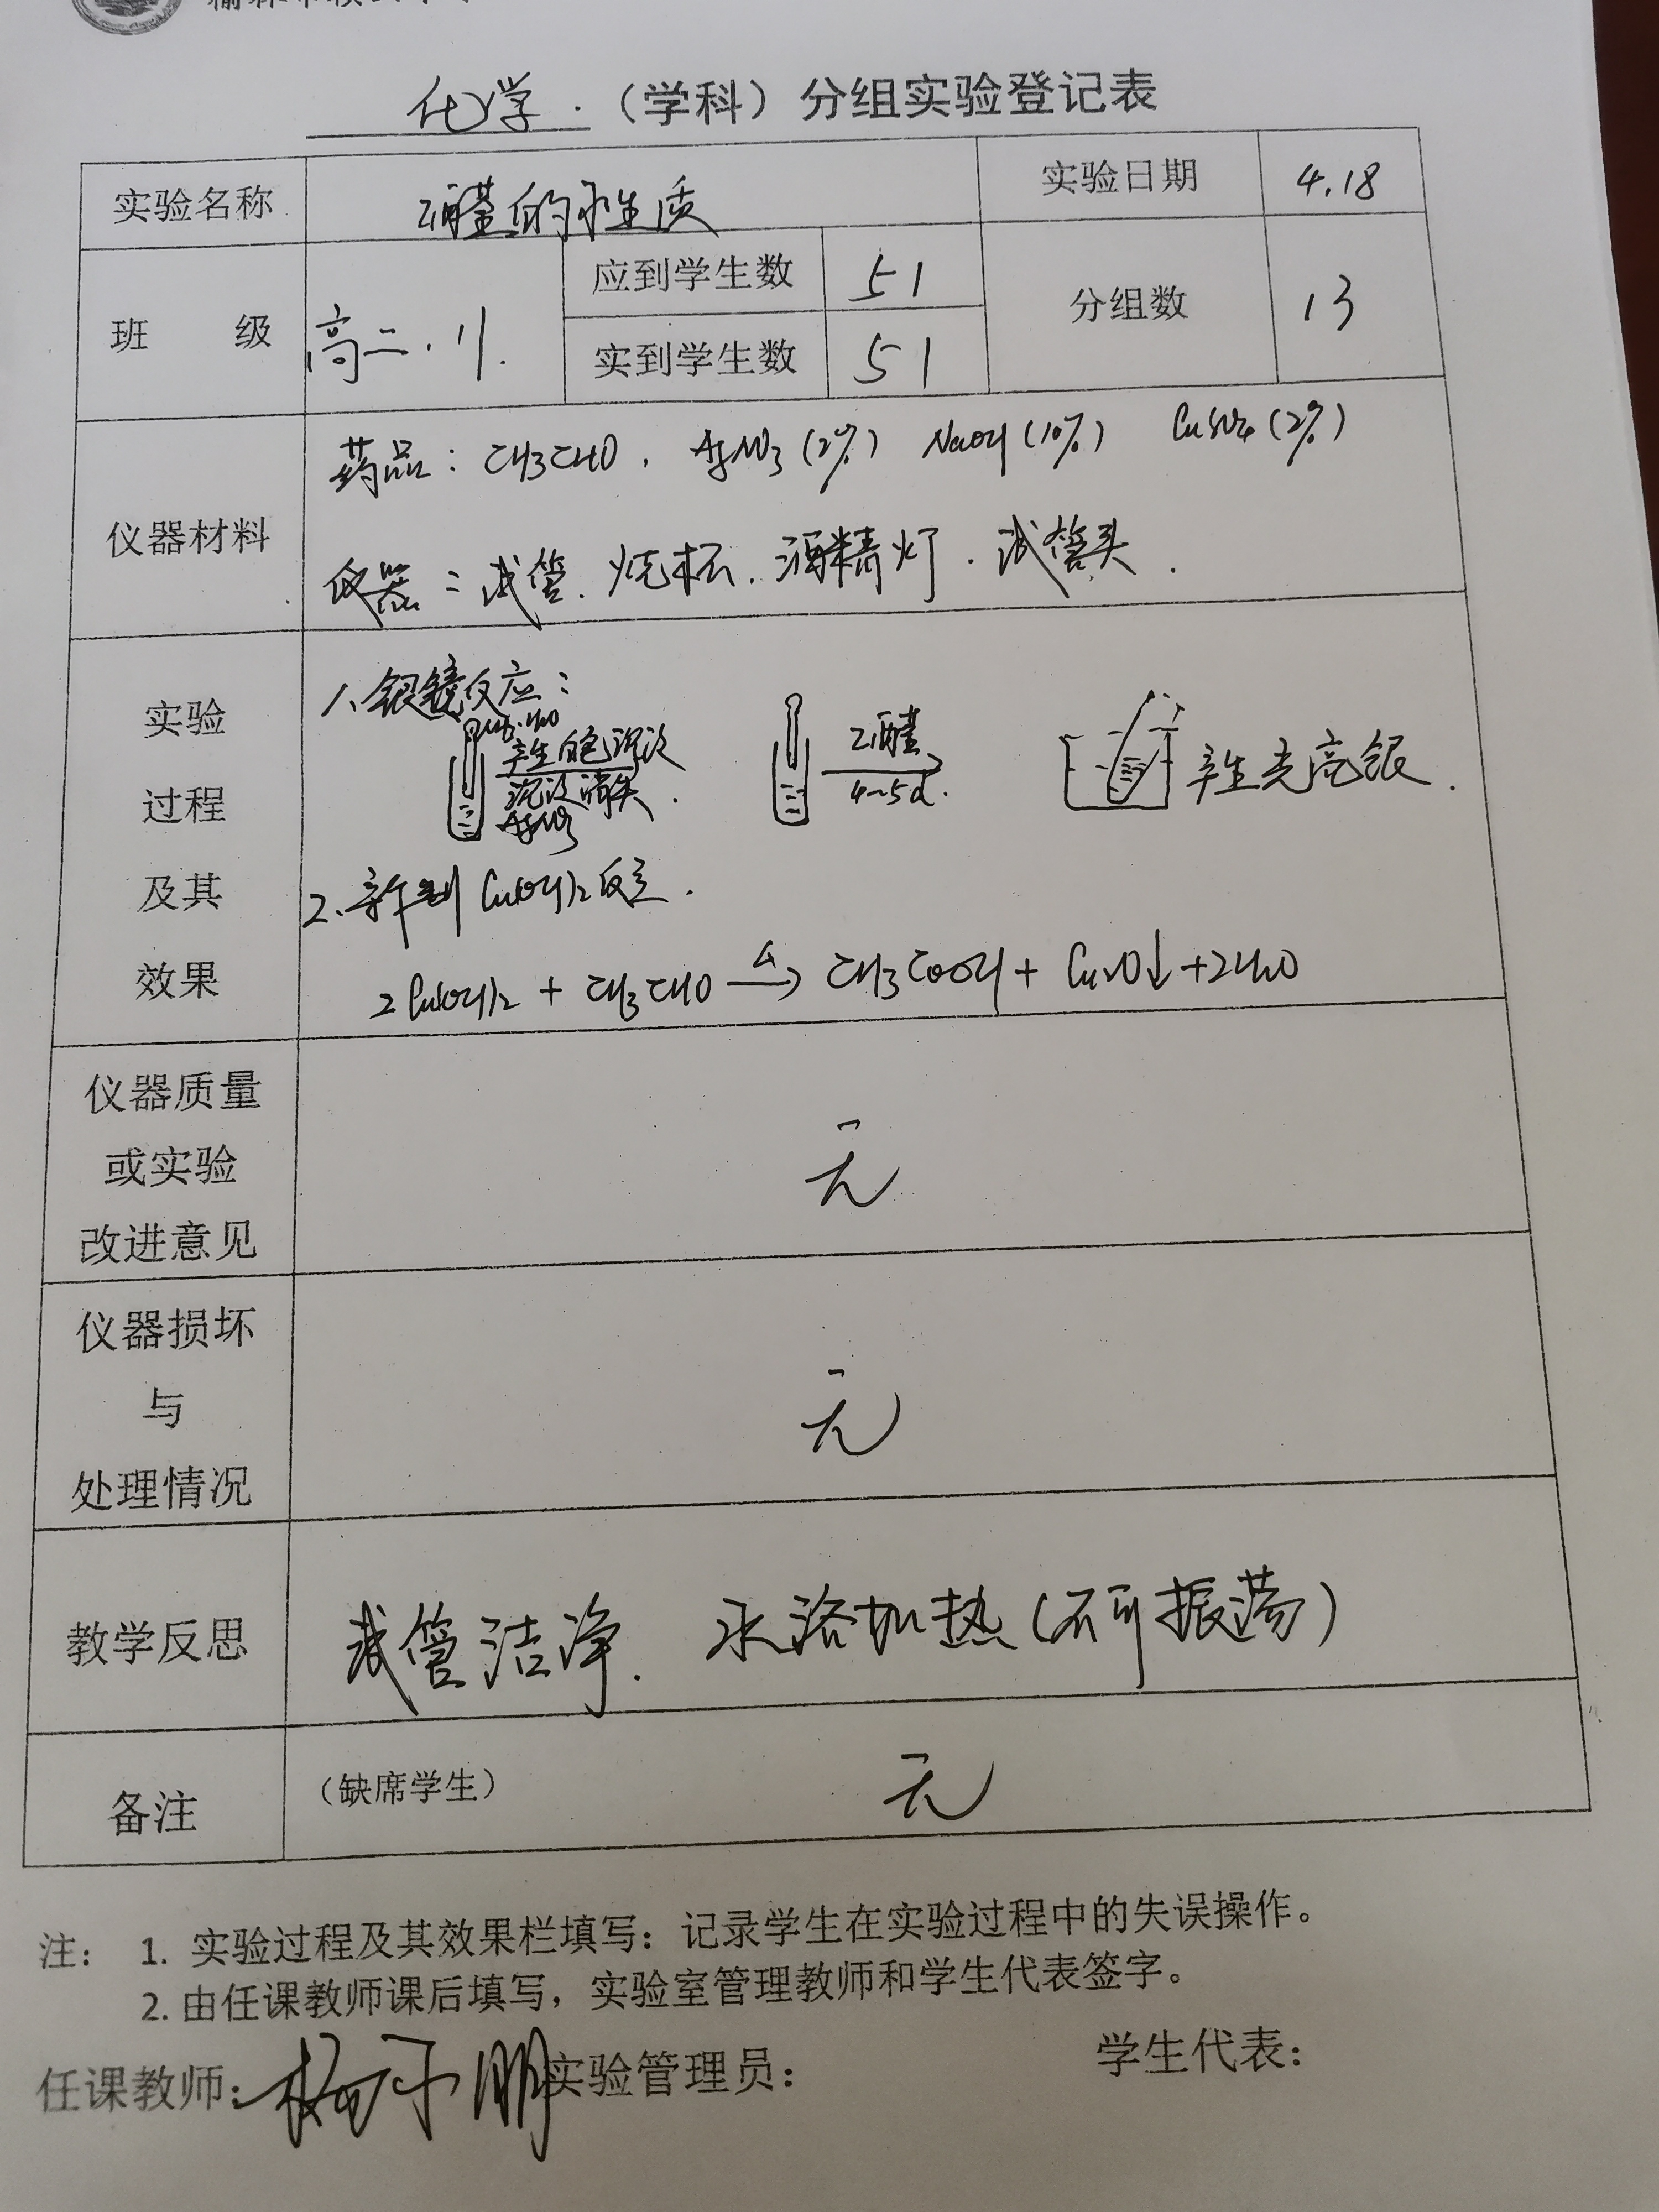 化学 (学科)分组实验登记表
实验名称 乙醛的性质 实验日期 4.18
班 级 高二.11. 应到学生数 51 分组数 13
实到学生数 51
仪器材料
药品：CH3CHO、AgNO3(2%) NaOH(10%) CuSO4(2%)
仪器：试管、烧杯、酒精灯、试管夹.
实验
过程
及其
效果
1、银镜反应：
产生白色沉淀
沉淀消失.
AgNO3
乙醛
4~5d.
产生光亮银.
2、新制Cu(OH)2反应.
2Cu(OH)2 + CH3CHO △→ CH3COOH + Cu2O↓+2H2O
仪器质量
或实验
改进意见
无
仪器损坏
与
处理情况
无
教学反思 试管洁净. 水浴加热(不可振荡)
备注 (缺席学生) 无
注： 1. 实验过程及其效果栏填写：记录学生在实验过程中的失误操作。
2. 由任课教师课后填写，实验室管理教师和学生代表签字。
任课教师： 实验管理员： 学生代表：